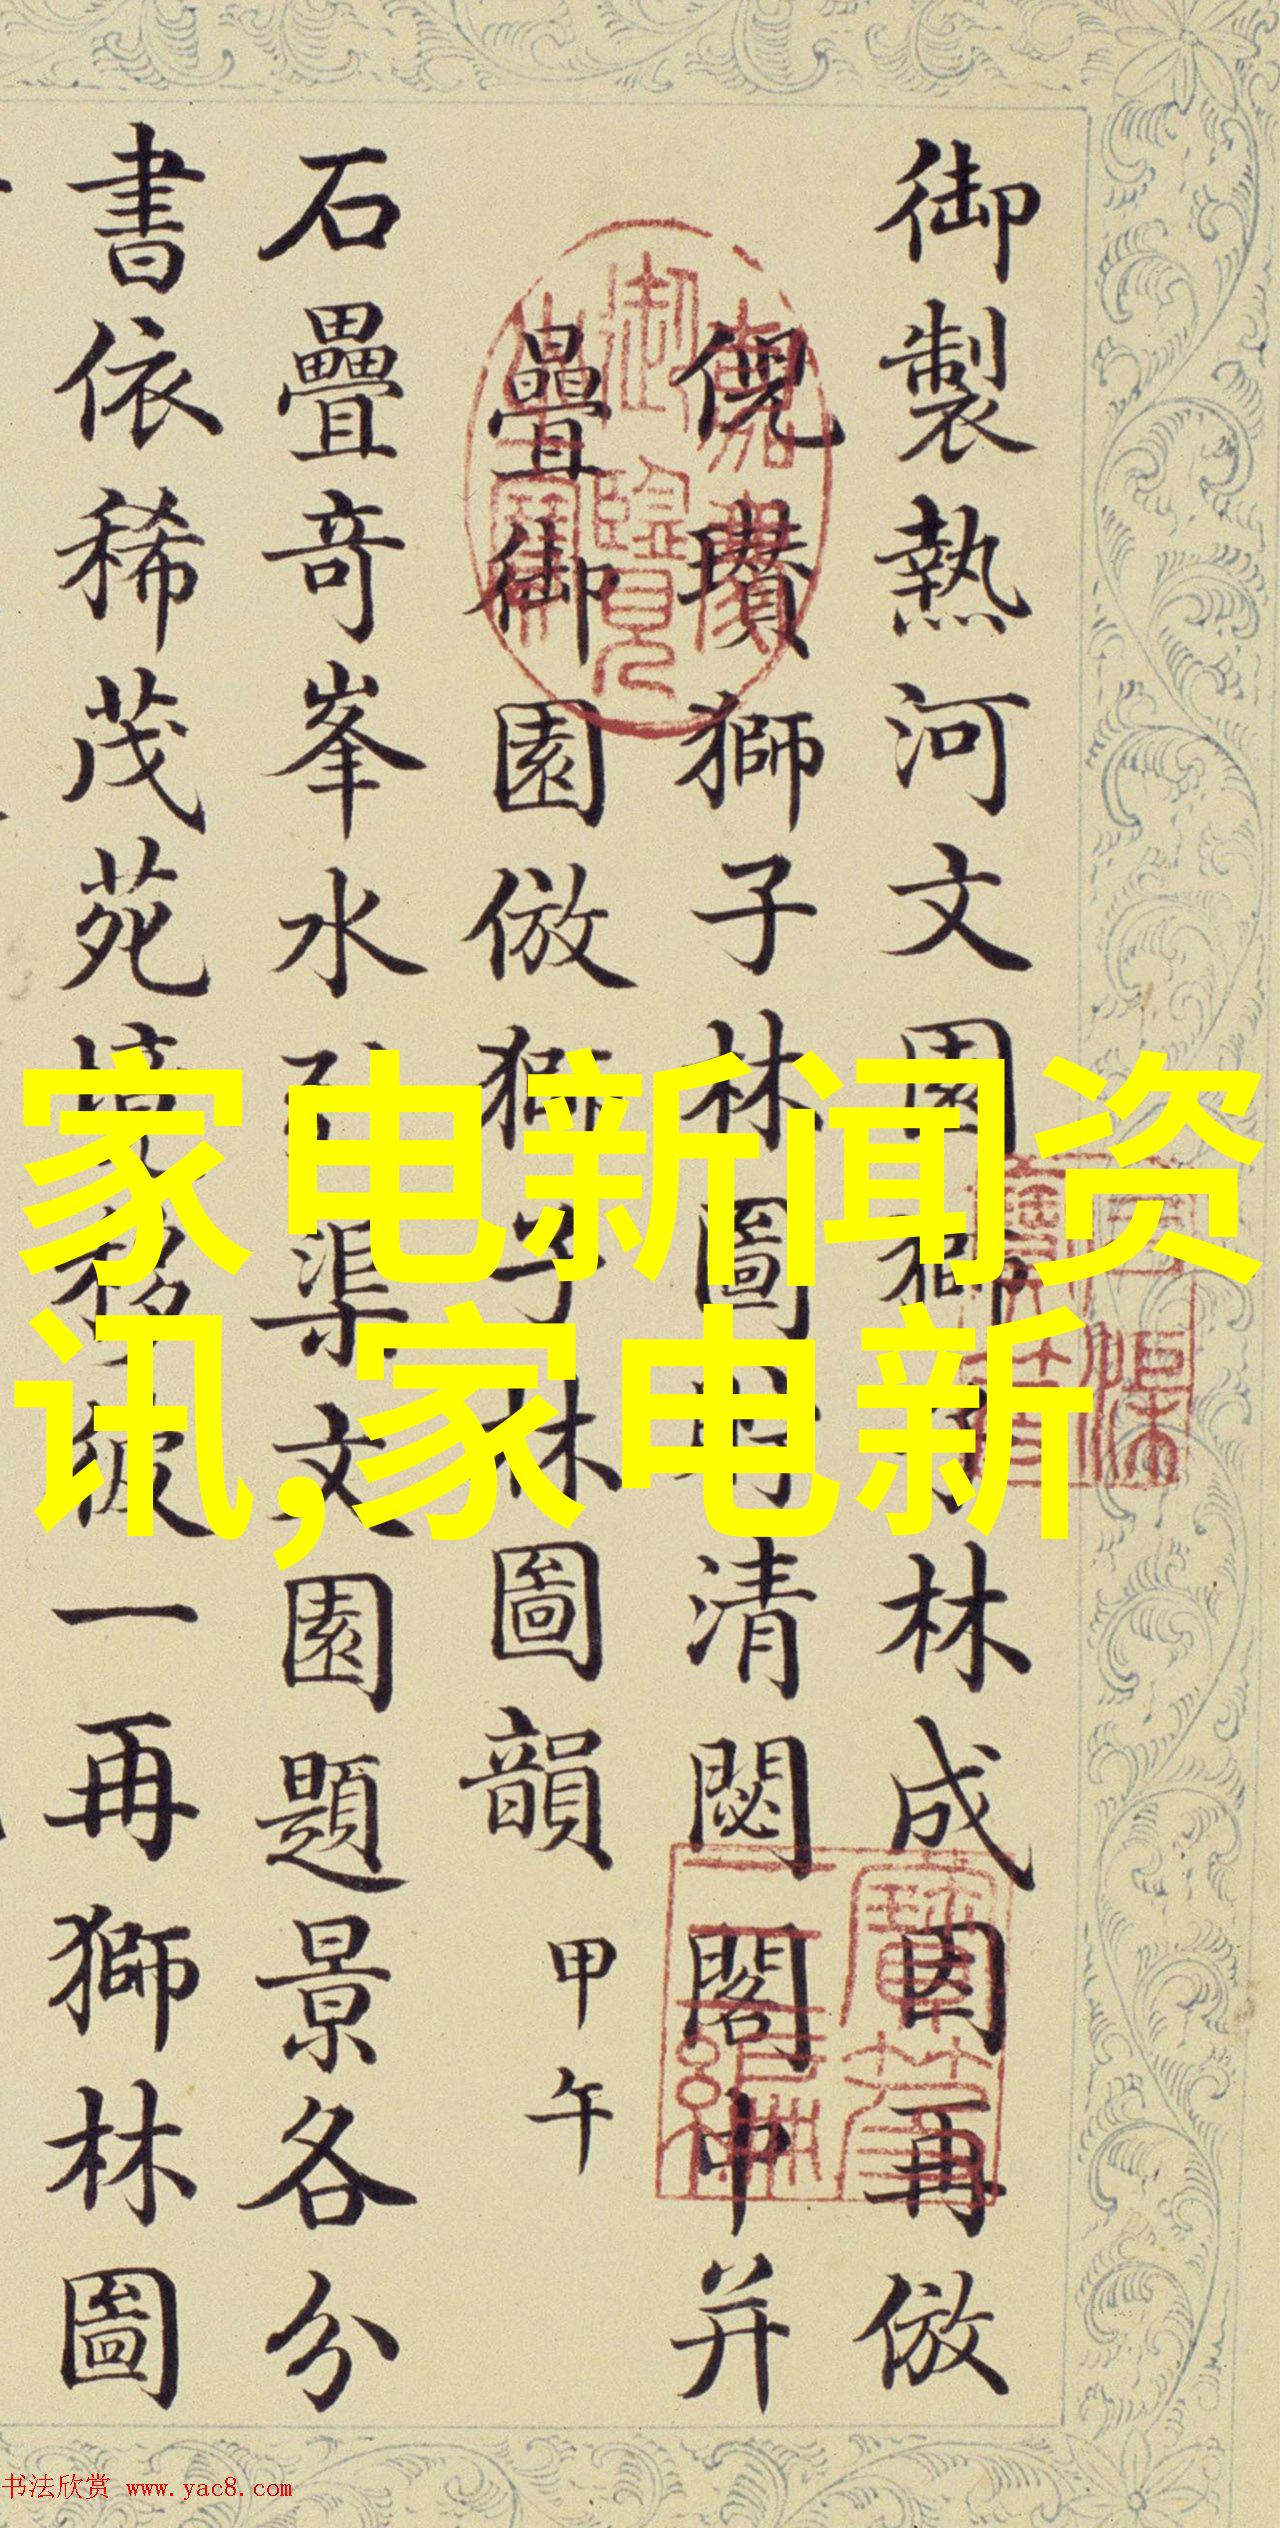 御製熱河文園獅子林成因再倣
倪瓚獅子林圖書清閟閣中并
疊御園倣獅子林圖韻 甲午
石疊奇峯水引渠文園題景各分
書依稀茂苑境移彼一再獅林圖
家电新闻资
讯,家电新
书法欣赏 www.yac8.com